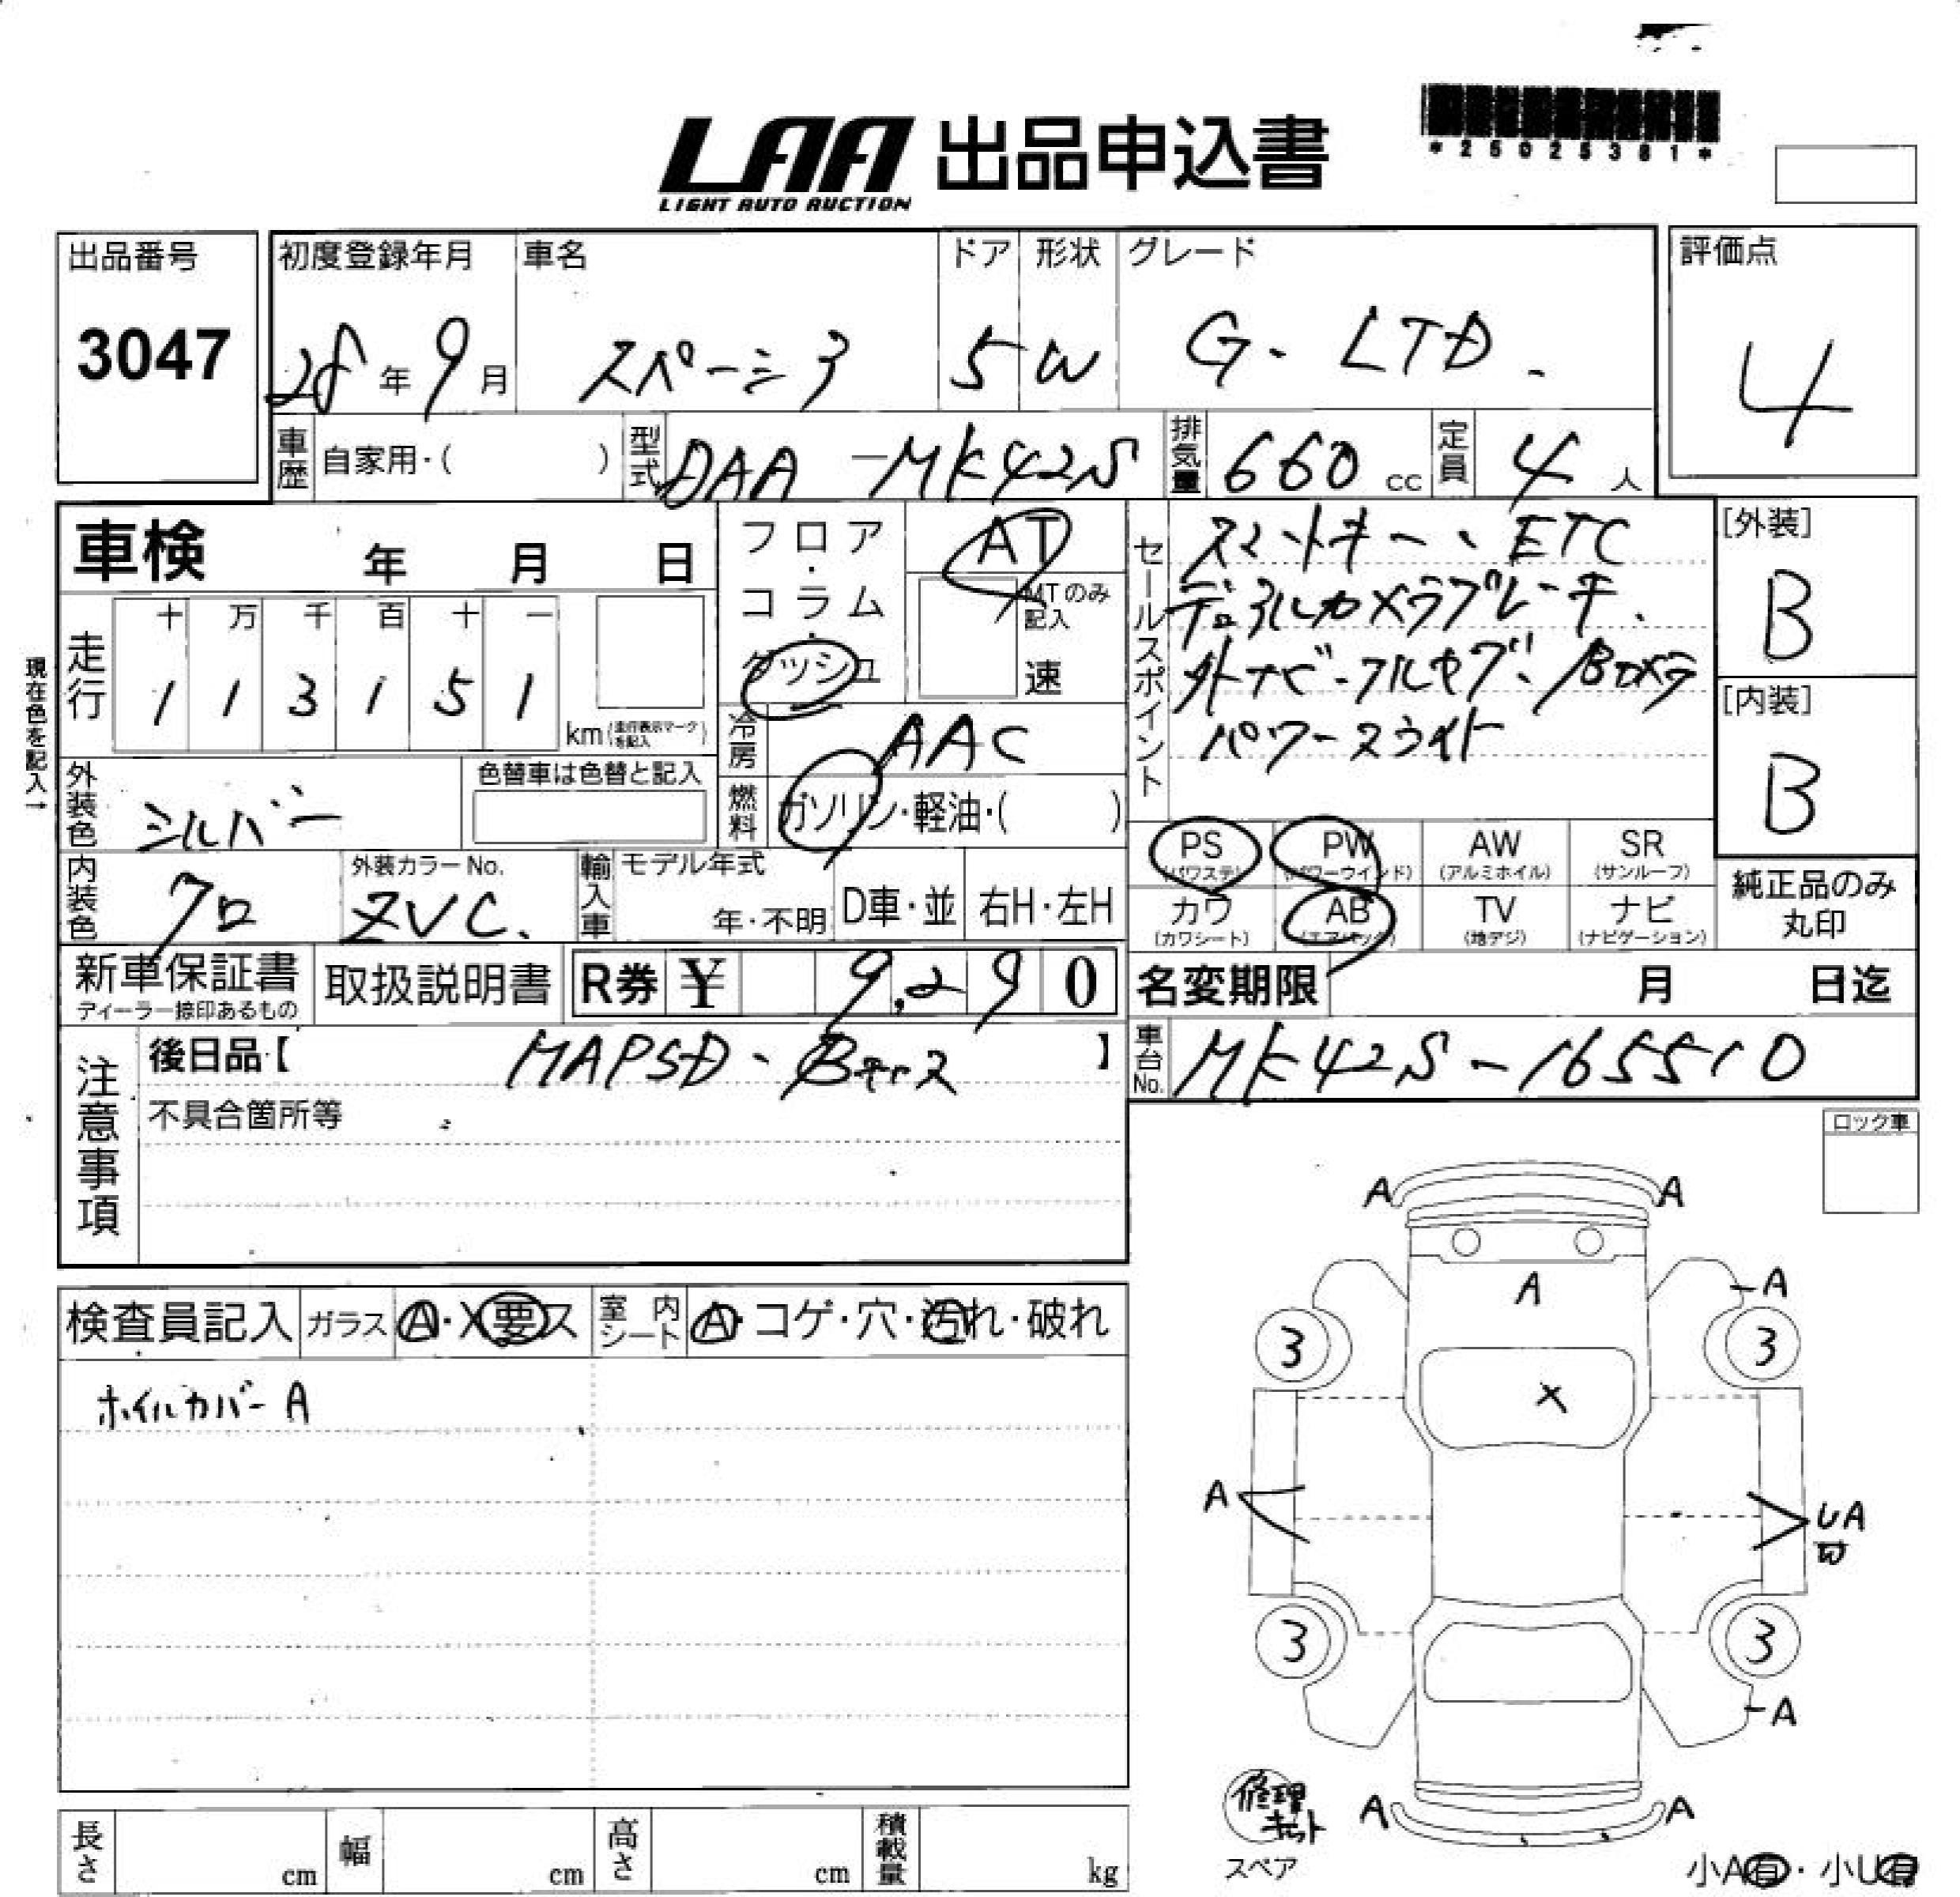 *25025381*
LAA 出品申込書
LIGHT AUTO AUCTION
出品番号
3047
初度登録年月
28年9月
車名
スペーシア
ドア
5
形状
W
グレード
G. LTD.
評価点
4
車歴
自家用・( )
型式
DAA-MK42S
排気量
660 cc
定員
4人
車検 年 月 日
フロア・コラム・ダッシュ
AT
MTのみ記入
速
セールスポイント
スマートキー、ETC
デュアルカメラブレーキ.
外ナビ-フルセグ・Bカメラ
パワースライド
[外装]
B
[内装]
B
現在色を記入→
走行
十 万 千 百 十 一
1 1 3 1 5 1
km(走行表示マークを記入)
冷房
AAC
外装色
シルバー
色替車は色替と記入
燃料
ガソリン・軽油・( )
PS
(パワステ)
PW
(パワーウインド)
AW
(アルミホイル)
SR
(サンルーフ)
カワ
(カワシート)
AB
(エアバック)
TV
(地デジ)
ナビ
(ナビゲーション)
純正品のみ
丸印
内装色
クロ
外装カラーNo.
ZVC.
輸入車
モデル年式
年・不明
D車・並
右H・左H
新車保証書
ディーラー捺印あるもの
取扱説明書
R券 ¥ 9,290
名変期限 月 日迄
注意事項
後日品【 】
不具合箇所等
車台No.
MK42S-165510
ロック車
検査員記入
ガラス
A・X要ス
室内シート
A・コゲ・穴・汚れ・破れ
ホイルカバーA
A A
A
-A
3 3
X
A
UA
3 3
-A
修理キット
スペア
A A
小A有・小U有
長さ cm
幅 cm
高さ cm
積載量 kg